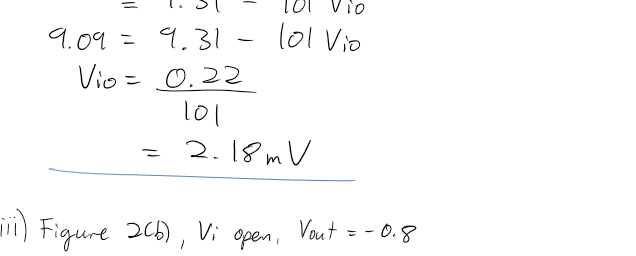 = 9.31 - 101 Vio
9.09 = 9.31 - 101 Vio
Vio = 0.22
101
= 2.18mV
iii) Figure 2(b), Vi open, Vout = -0.8